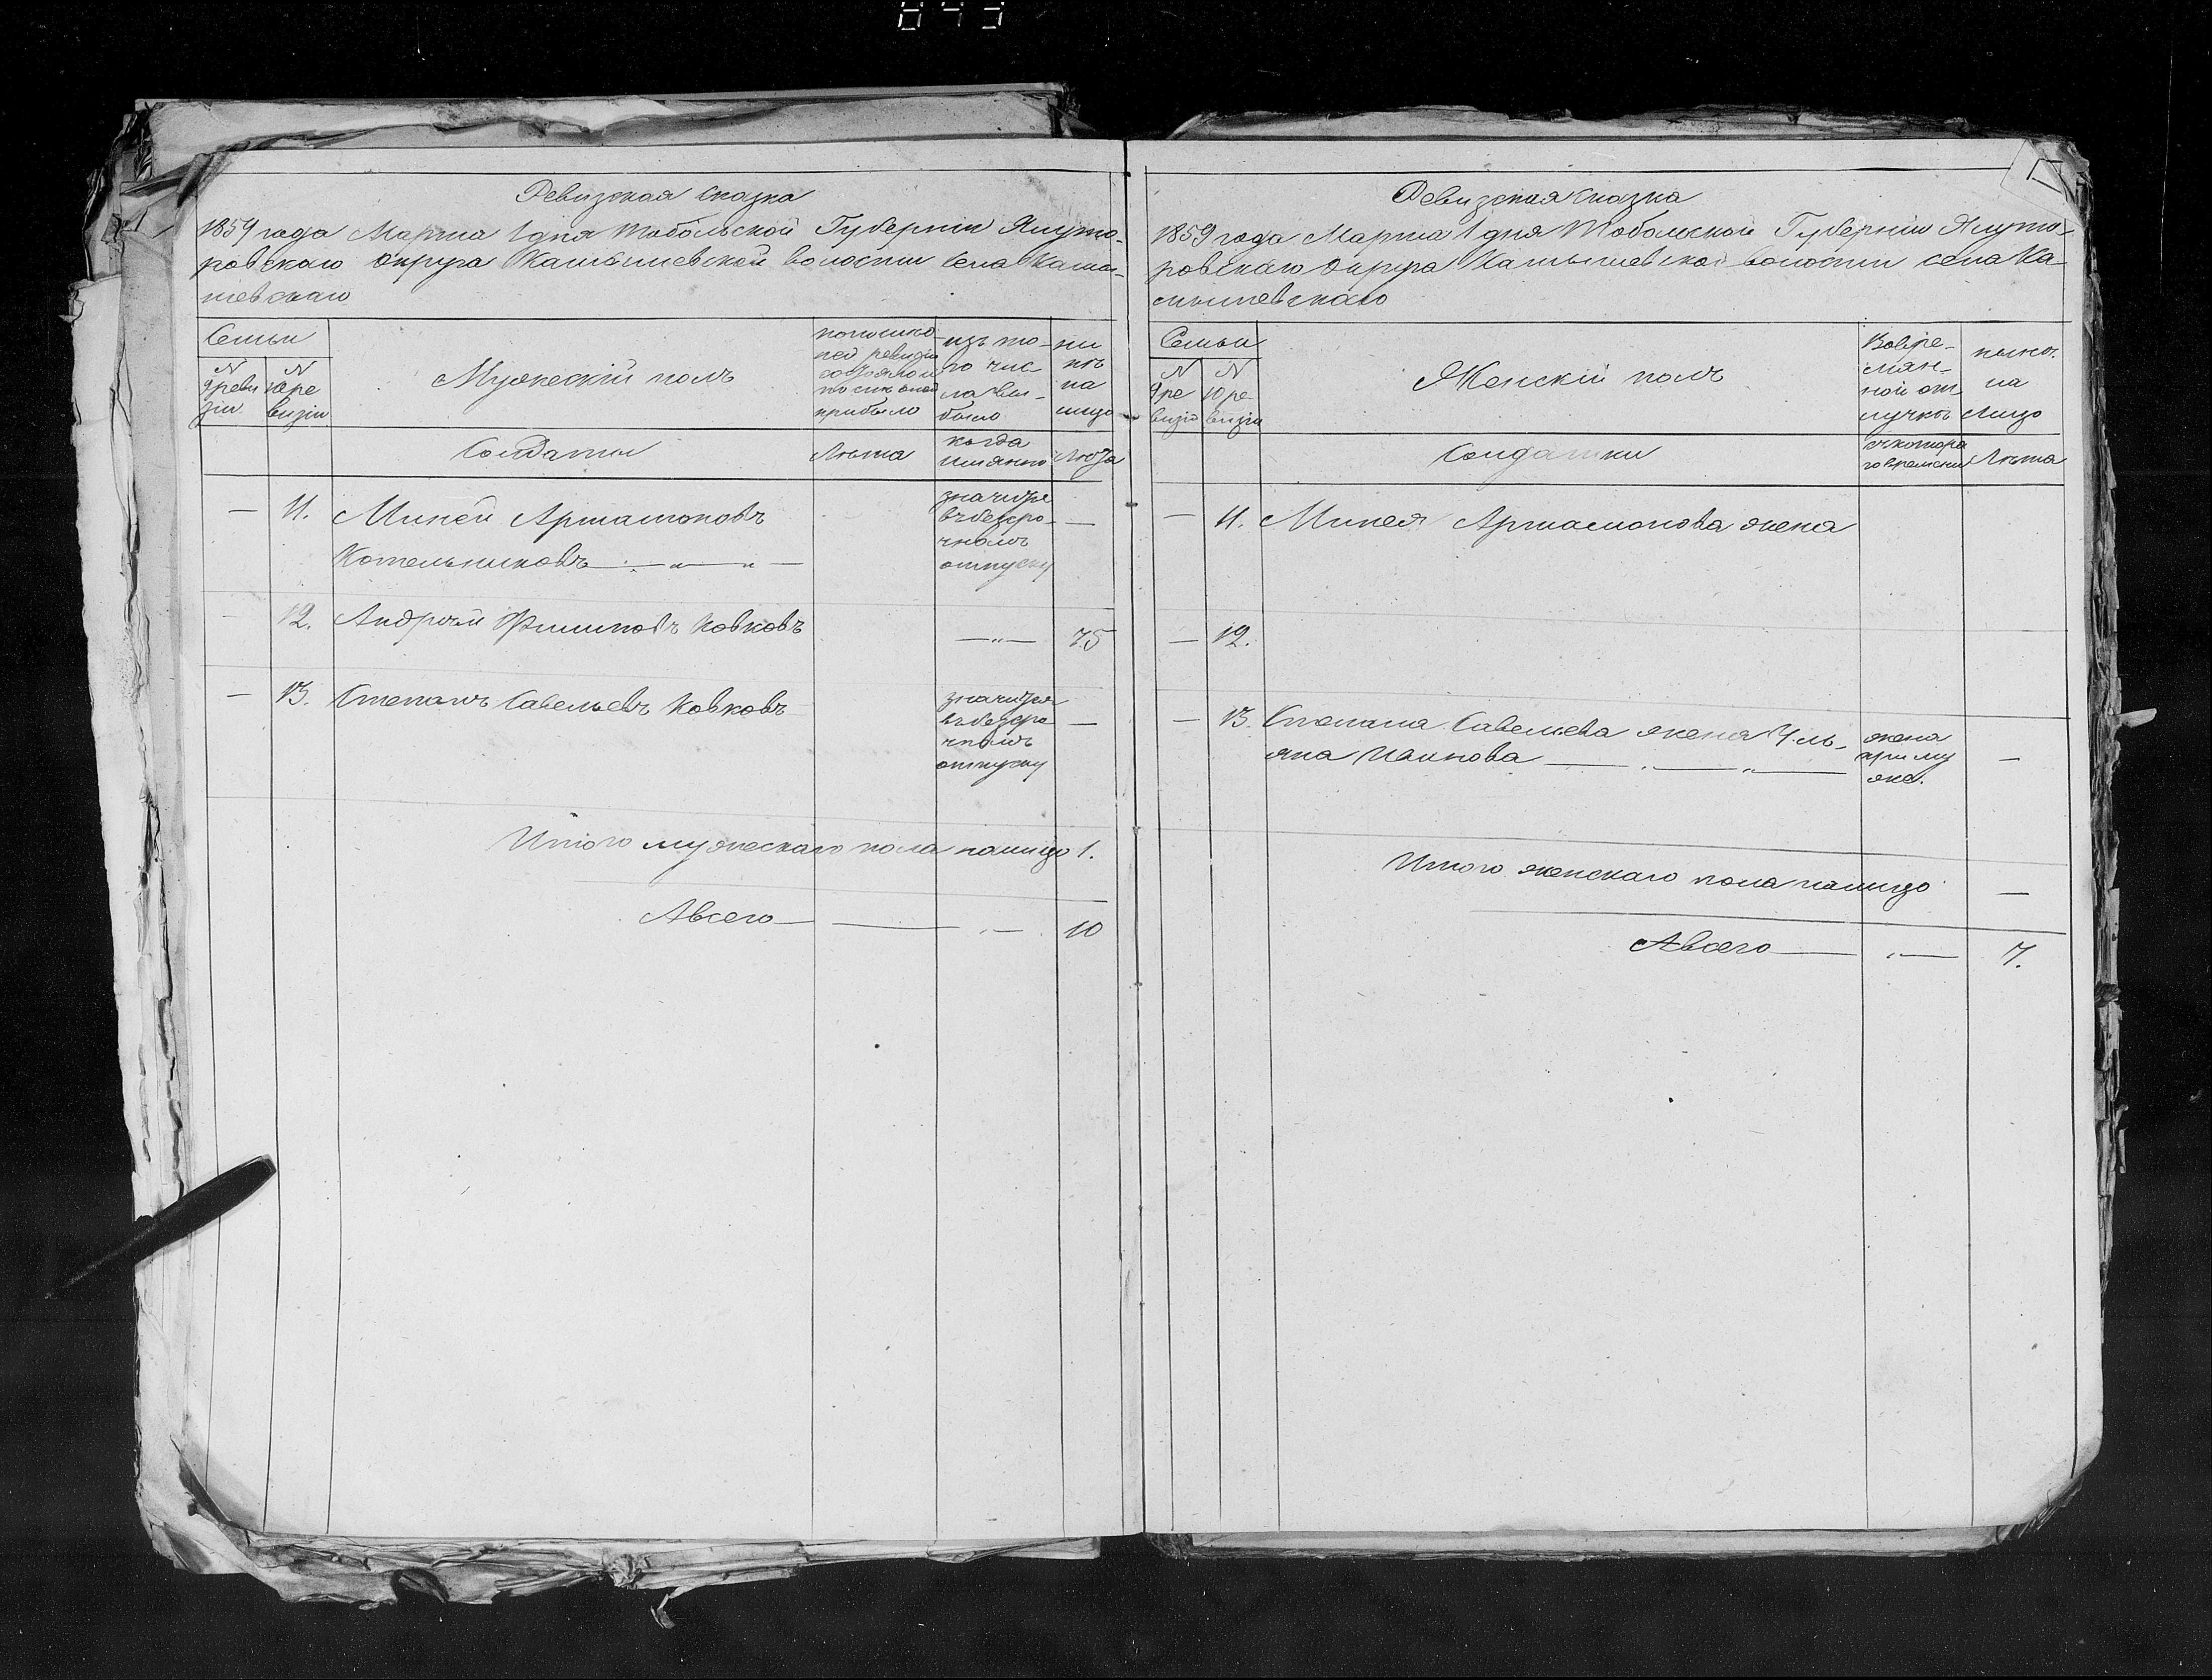 843
Ревизская сказка
1859 года Марта 1 дня Тобольской Губерніи Ялуто-
ровскаго Округа Камышевской волости села Камы-
шевскаго
Семьи
N 9 реви зіи
N 10 ре визіи
Мужескій полъ
по послѣд ней ревизіи состояло и послѣ оной прибыло
изъ то- го чис ла вы- было
ны нѣ на лицо
Солдаты
Лѣта
когда имянно
Лѣта
— 11. Миней Артамоновъ
Котельниковъ — „ — „ —
значится
въ безсро-
чномъ
отпуску
—
— 12. Андрей Филиповъ Ковковъ
— „ — 75
— 13. Степанъ Савельевъ Ковковъ
значится
въ безсро
чномъ
отпуску
—
Итого мужескаго пола налицо 1.
А всего — — „ — 10
Ревизская сказка
1859 года Марта 1 дня Тобольской Губерніи Ялуто-
ровскаго Округа Камышевской волости села Ка-
мышевскаго
Семьи
N 9 ре визіи
N 10 ре визіи
Женскій полъ
Во вре- мян- ной от лучкѣ
нынѣ на лицо
Солдатки
съ котора го времени
Лѣта
— 11. Минея Артамонова жена
— 12.
— 13. Степана Савельева жена Уль-
яна — „ — „ —
жена
при му
же.
—
Итого женскаго пола налицо —
А всего — „ — 7.